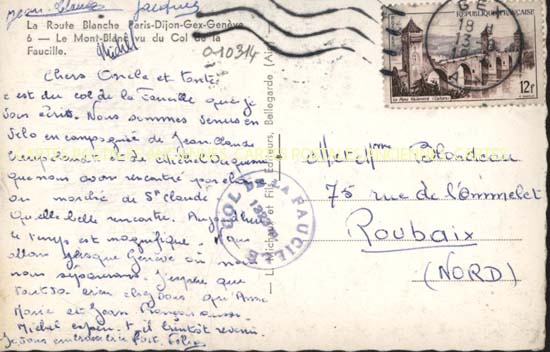 Jean Claude Jacques
La Route Blanche Paris-Dijon-Gex-Genève
6 — Le Mont-Blanc vu du Col de la
Faucille.
Michel
010314
Chers Oncle et Tante
c'est du col de la Faucille que je
vous écris. Nous sommes venus en
vélo en compagnie de Jean-Claude
et de Michel
que nous avons rencontré par chance
au marché de St Claude.
Quelle belle rencontre. Aujourd'hui
le temps est magnifique. Nous
allons jusque Genève où nous
nous séjournerons. J'espère que
tout va bien chez vous que Anne
Marie et Jean François aussi.
Michel espère t il bientôt revenir.
Je vous embrasse bien fort. Felix
L. Michaux et Fils, Editeurs, Bellegarde (Ain)
COL DE LA FAUCILLE
GEX
18
13
RÉPUBLIQUE FRANÇAISE
POSTES
Le Pont Valentré (Cahors)
12f
Mr et Mme Blondeau
75 rue de l'Ommelet
Roubaix
(NORD)